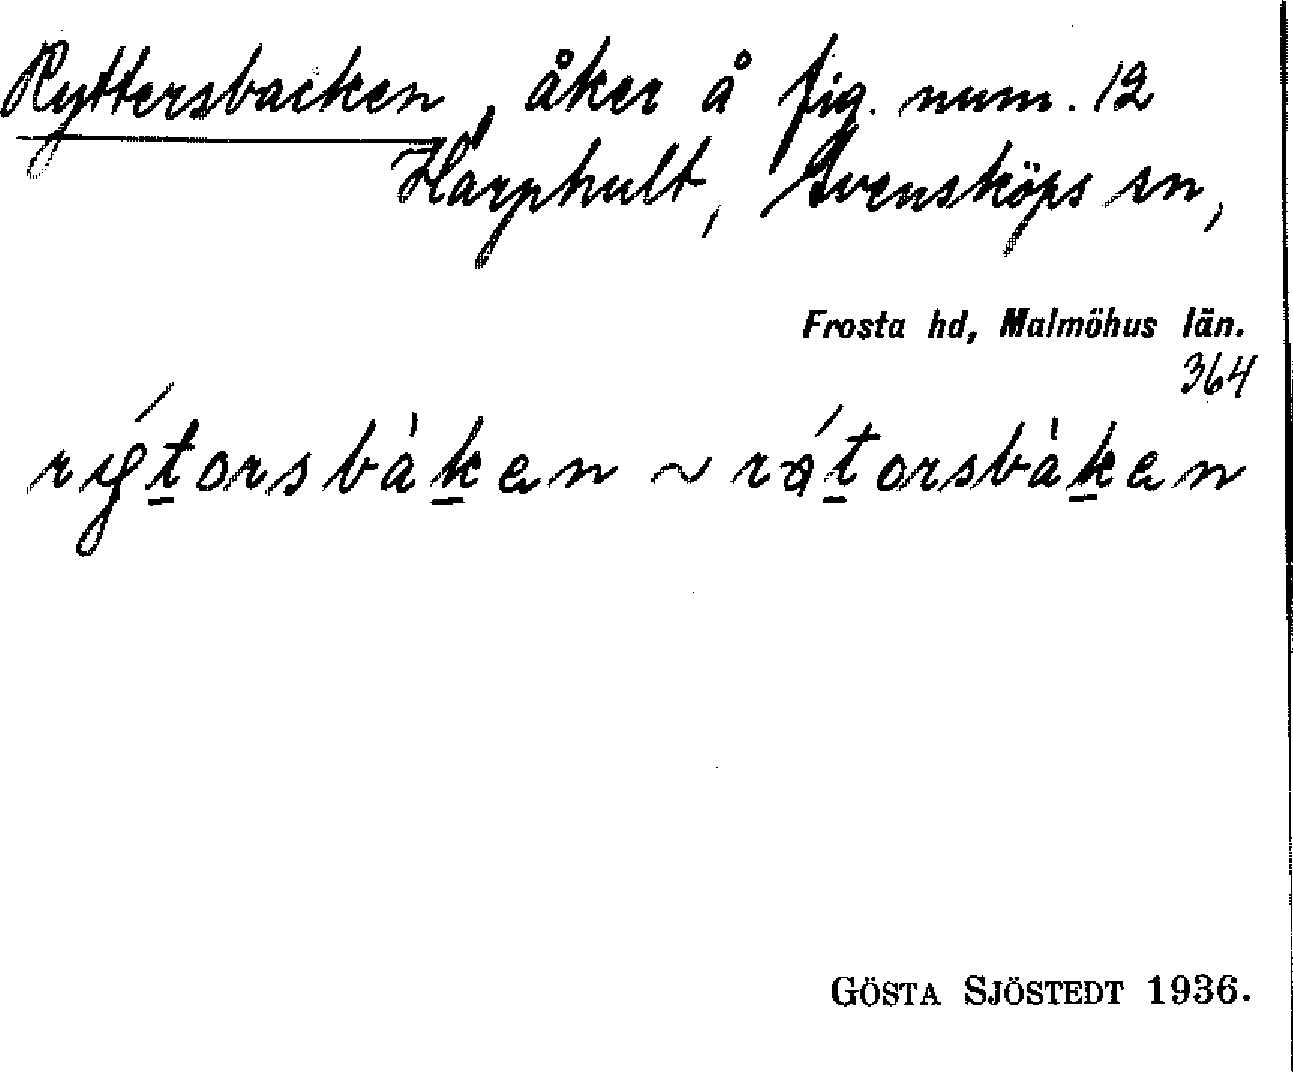 Ryttersbacken, åker å fig. num. 12
Harphult, Svensköps sn,
Frosta hd, Malmöhus län.
364
rýt̲orsbàk̲en ~ rǿt̲orsbàk̲en
GÖSTA SJÖSTEDT 1936.